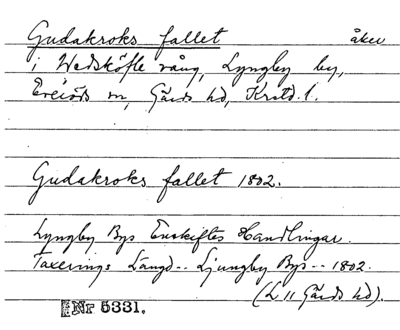 Gudakroks fallet åker
i Wedsköfle vång, Lyngby by,
sn, Gärds hd, Krstd. l.
Gudakroks fallet 1802.
Lyngby Bys Enskiftes Handlingar.
Taxerings Längd -- Ljungby Bys -- 1802.
(L 11 Gärds hd).
Nr 5331.